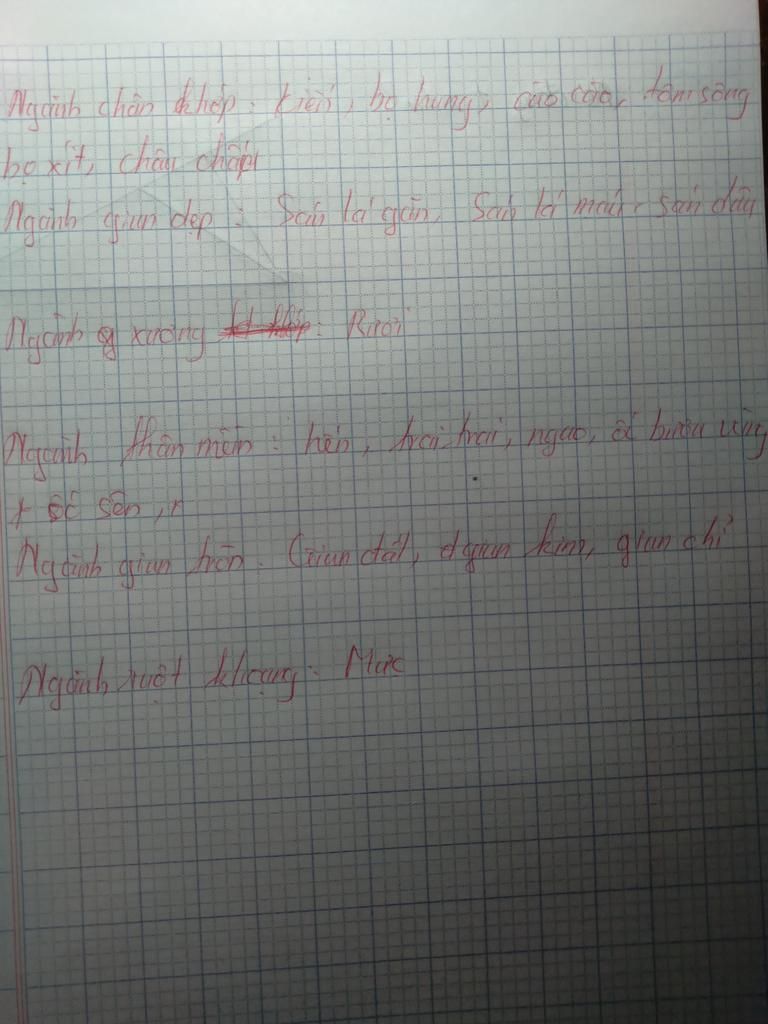 Ngành chân khớp: kiến, bọ hung, cào cào, tôm sông
bọ xít, châu chấu
Ngành giun dẹp: Sán lá gan, Sán lá máu, sán dây
Ngành xương : Rươi
Ngành thân mềm: hến, trai trai, ngao, ốc bươu vàng
+ ốc sên, r
Ngành giun tròn. Giun đất, giun kim, giun chỉ
Ngành ruột khoang: Mực